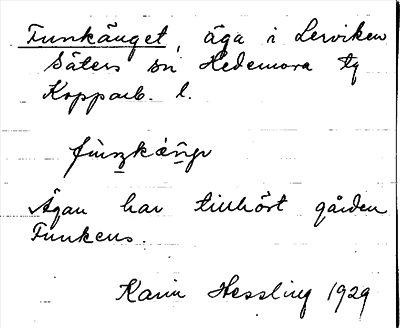 Funkänget, äga i Lerviken
Säters sn Hedemora tg
Kopparb. l.
Ägan har tillhört gården
Funkens.
Karin Hessling 1929